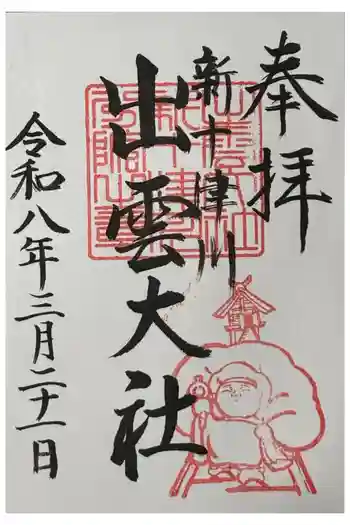 奉拝
新十津川
出雲大社
令和八年三月二十一日